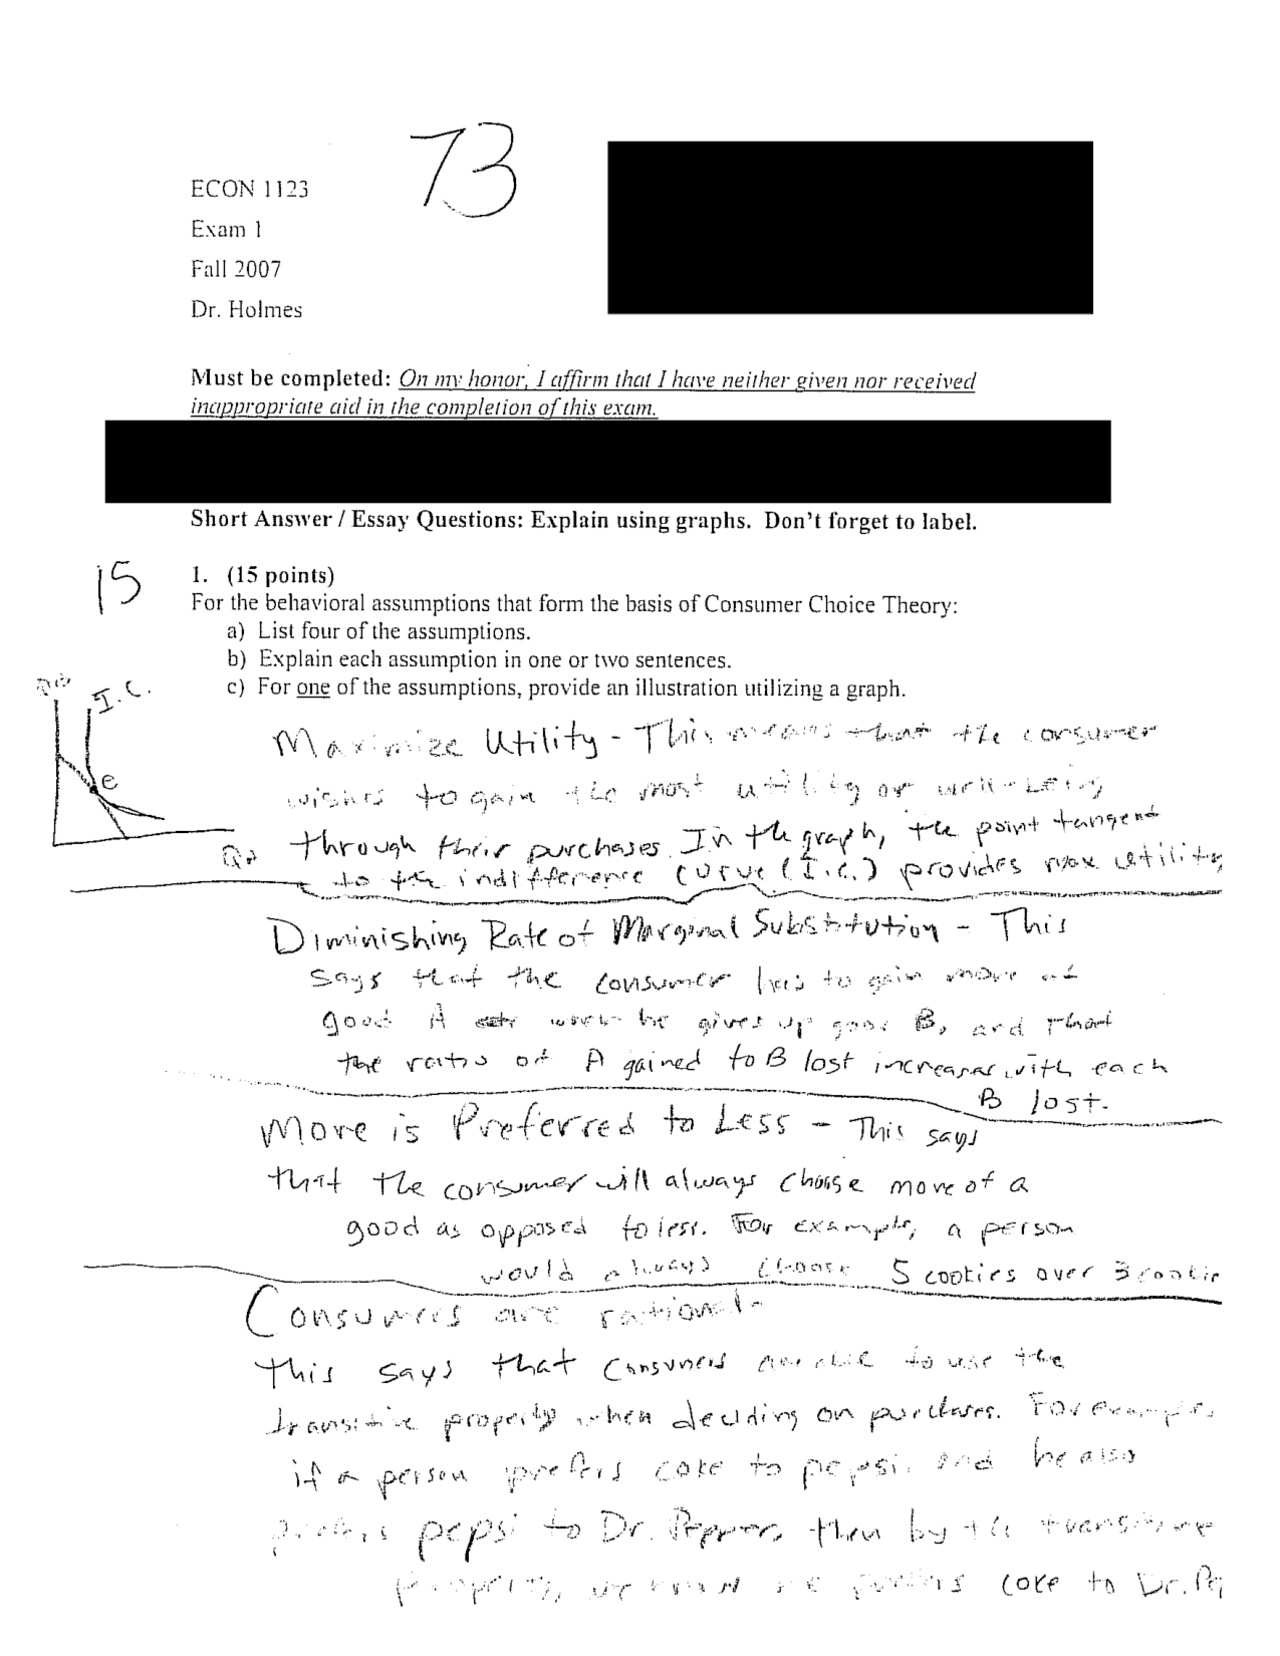 73
ECON 1123
Exam 1
Fall 2007
Dr. Holmes
Must be completed: On my honor, I affirm that I have neither given nor received
inappropriate aid in the completion of this exam.
Short Answer / Essay Questions: Explain using graphs. Don't forget to label.
15
1. (15 points)
For the behavioral assumptions that form the basis of Consumer Choice Theory:
a) List four of the assumptions.
b) Explain each assumption in one or two sentences.
c) For one of the assumptions, provide an illustration utilizing a graph.
I.C.
e
Maximize Utility - This means that the consumer
wishes to gain the most utility or well-being
through their purchases. In the graph, the point tangent
to the indifference curve (I.C.) provides max utility
Diminishing Rate of Marginal Substitution - This
says that the consumer has to gain more of
good A when he gives up good B, and that
the ratio of A gained to B lost increases with each
B lost.
More is Preferred to Less - This says
that the consumer will always choose more of a
good as opposed to less. For example, a person
would always choose 5 cookies over 3 cookie
Consumers are rational-
This says that consumers are able to use the
transitive property when deciding on purchases. For example,
if a person prefers coke to pepsi, and he also
prefers pepsi to Dr. Pepper, then by the transitive
property, we know he prefers coke to Dr. Pe